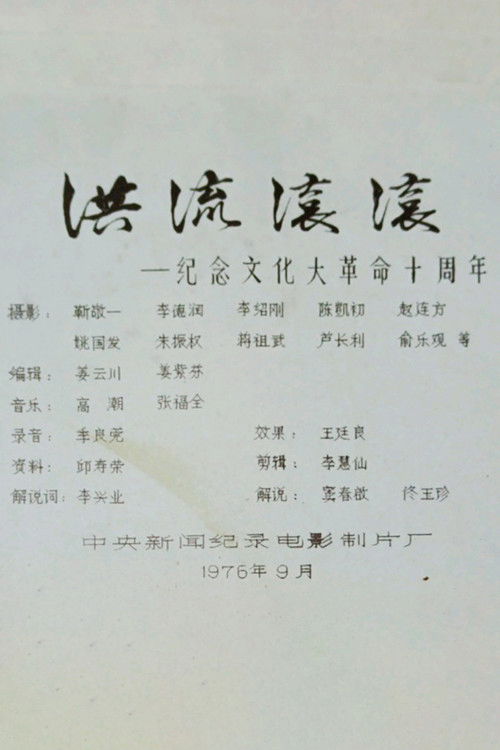 洪流滚滚
—纪念文化大革命十周年
摄影： 靳敬一 李德润 李绍刚 陈凯初 赵连方
姚国发 朱振权 蒋祖武 芦长利 俞乐观 等
编辑： 姜云川 姜紫芬
音乐： 高潮 张福全
录音： 李良尧 效果： 王廷良
资料： 邱寿荣 剪辑： 李慧仙
解说词：李兴业 解说： 窦春啟 佟玉珍
中央新闻纪录电影制片厂
1976年9月